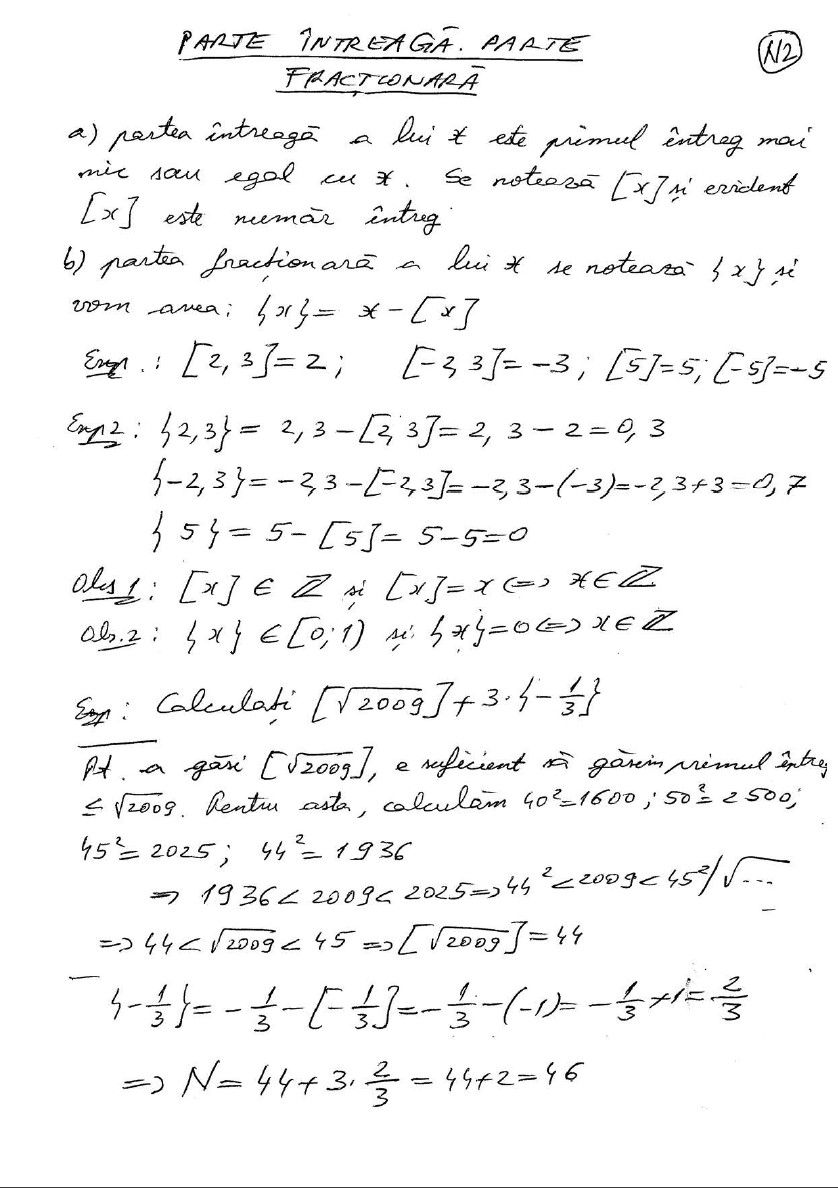 PARTE ÎNTREAGĂ. PARTE
FRACȚIONARĂ
N2
a) partea întreagă a lui x este primul întreg mai
mic sau egal cu x. Se notează [x] și evident
[x] este număr întreg
b) partea fracționară a lui x se notează {x} și
vom avea: {x} = x - [x]
Exp.: [2,3]=2; [-2,3]=-3; [5]=5; [-5]=-5
Exp2: {2,3} = 2,3-[2,3]=2,3-2=0,3
{-2,3}=-2,3-[-2,3]=-2,3-(-3)=-2,3+3=0,7
{5} = 5-[5]= 5-5=0
Obs1: [x] ∈ ℤ și [x]=x <=> x∈ℤ
Obs.2: {x} ∈[0;1) și {x}=0<=>x∈ℤ
Exp: Calculați [√2009]+3·{-1/3}
Pt. a găsi [√2009], e suficient să găsim primul întreg
≤√2009. Pentru asta, calculăm 40²=1600; 50²=2500;
45²=2025; 44²=1936
=> 1936<2009<2025=>44²<2009<45²/√...
=>44<√2009<45=>[√2009]=44
{-1/3}=-1/3-[-1/3]=-1/3-(-1)=-1/3+1=2/3
=> N=44+3·2/3=44+2=46